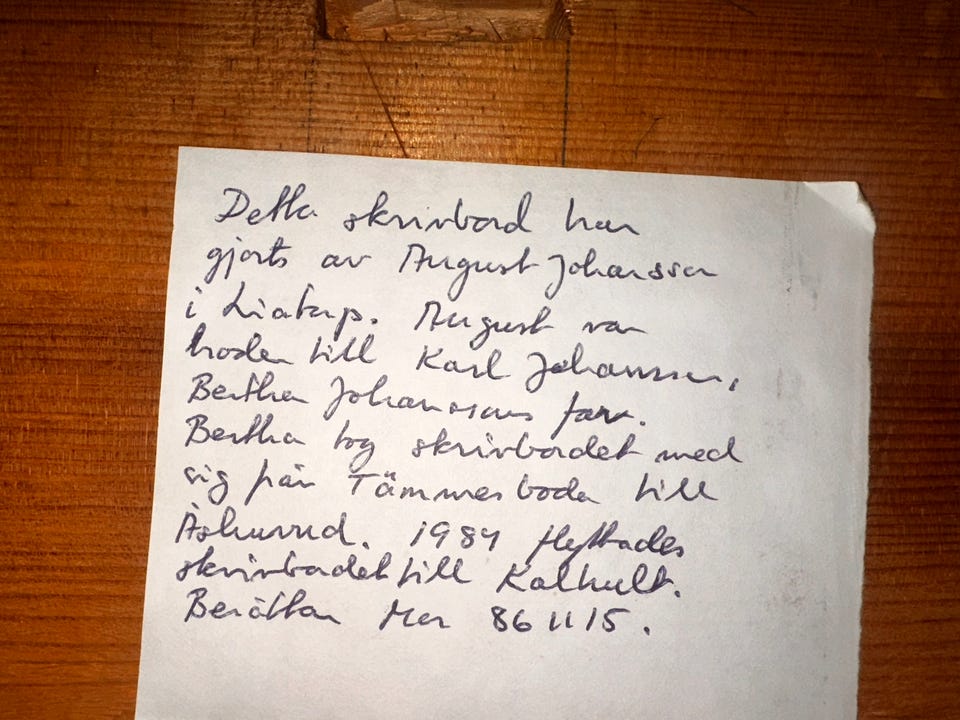 Detta skrivbord har
gjorts av August Johansson
i Liatorp. August var
broder till Karl Johansson,
Bertha Johanssons far.
Bertha tog skrivbordet med
sig från Tämmesboda till
Åshuvud. 1984 flyttades
skrivbordet till Kalhult.
Berättar Mor 861115.